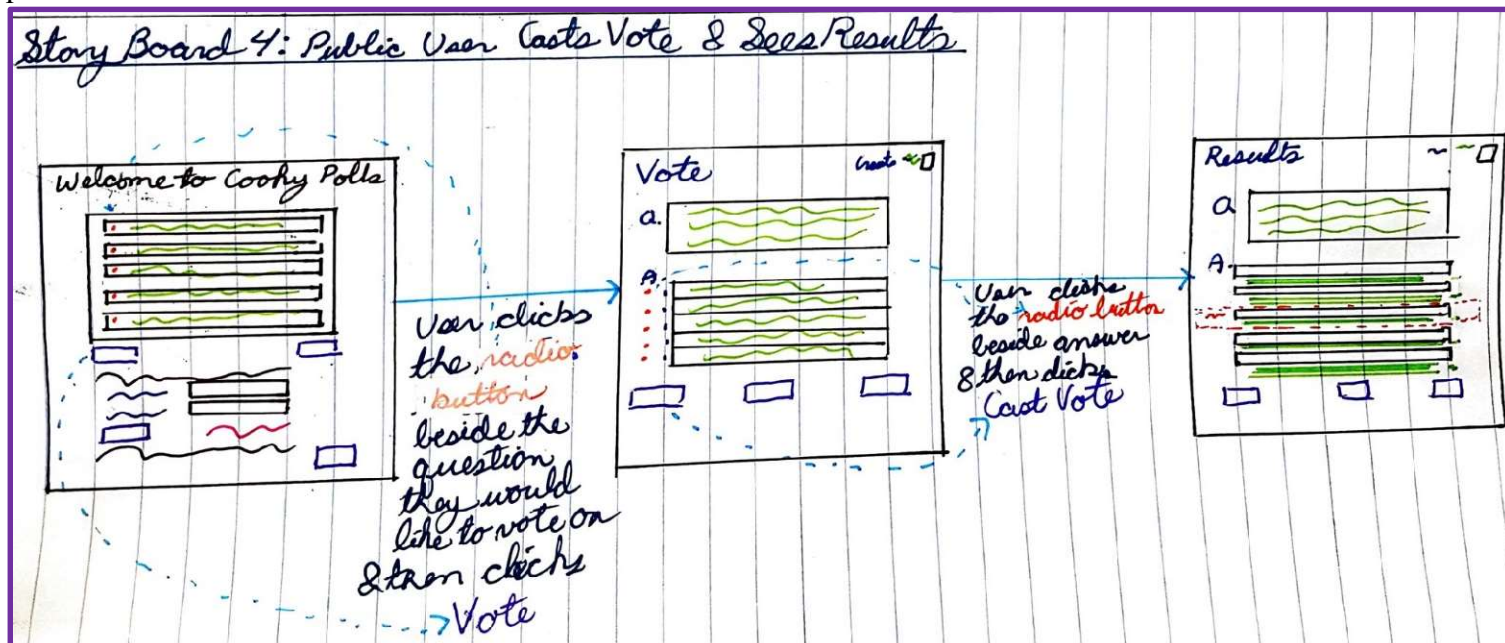 Story Board 4: Public User Casts Vote & Sees Results
Welcome to Cooky Polls
User clicks
the radio
button
beside the
question
they would
like to vote on
& then clicks
Vote
Vote
Create
Q.
A.
User clicks
the radio button
beside answer
& then clicks
Cast Vote
Results
Q
A.